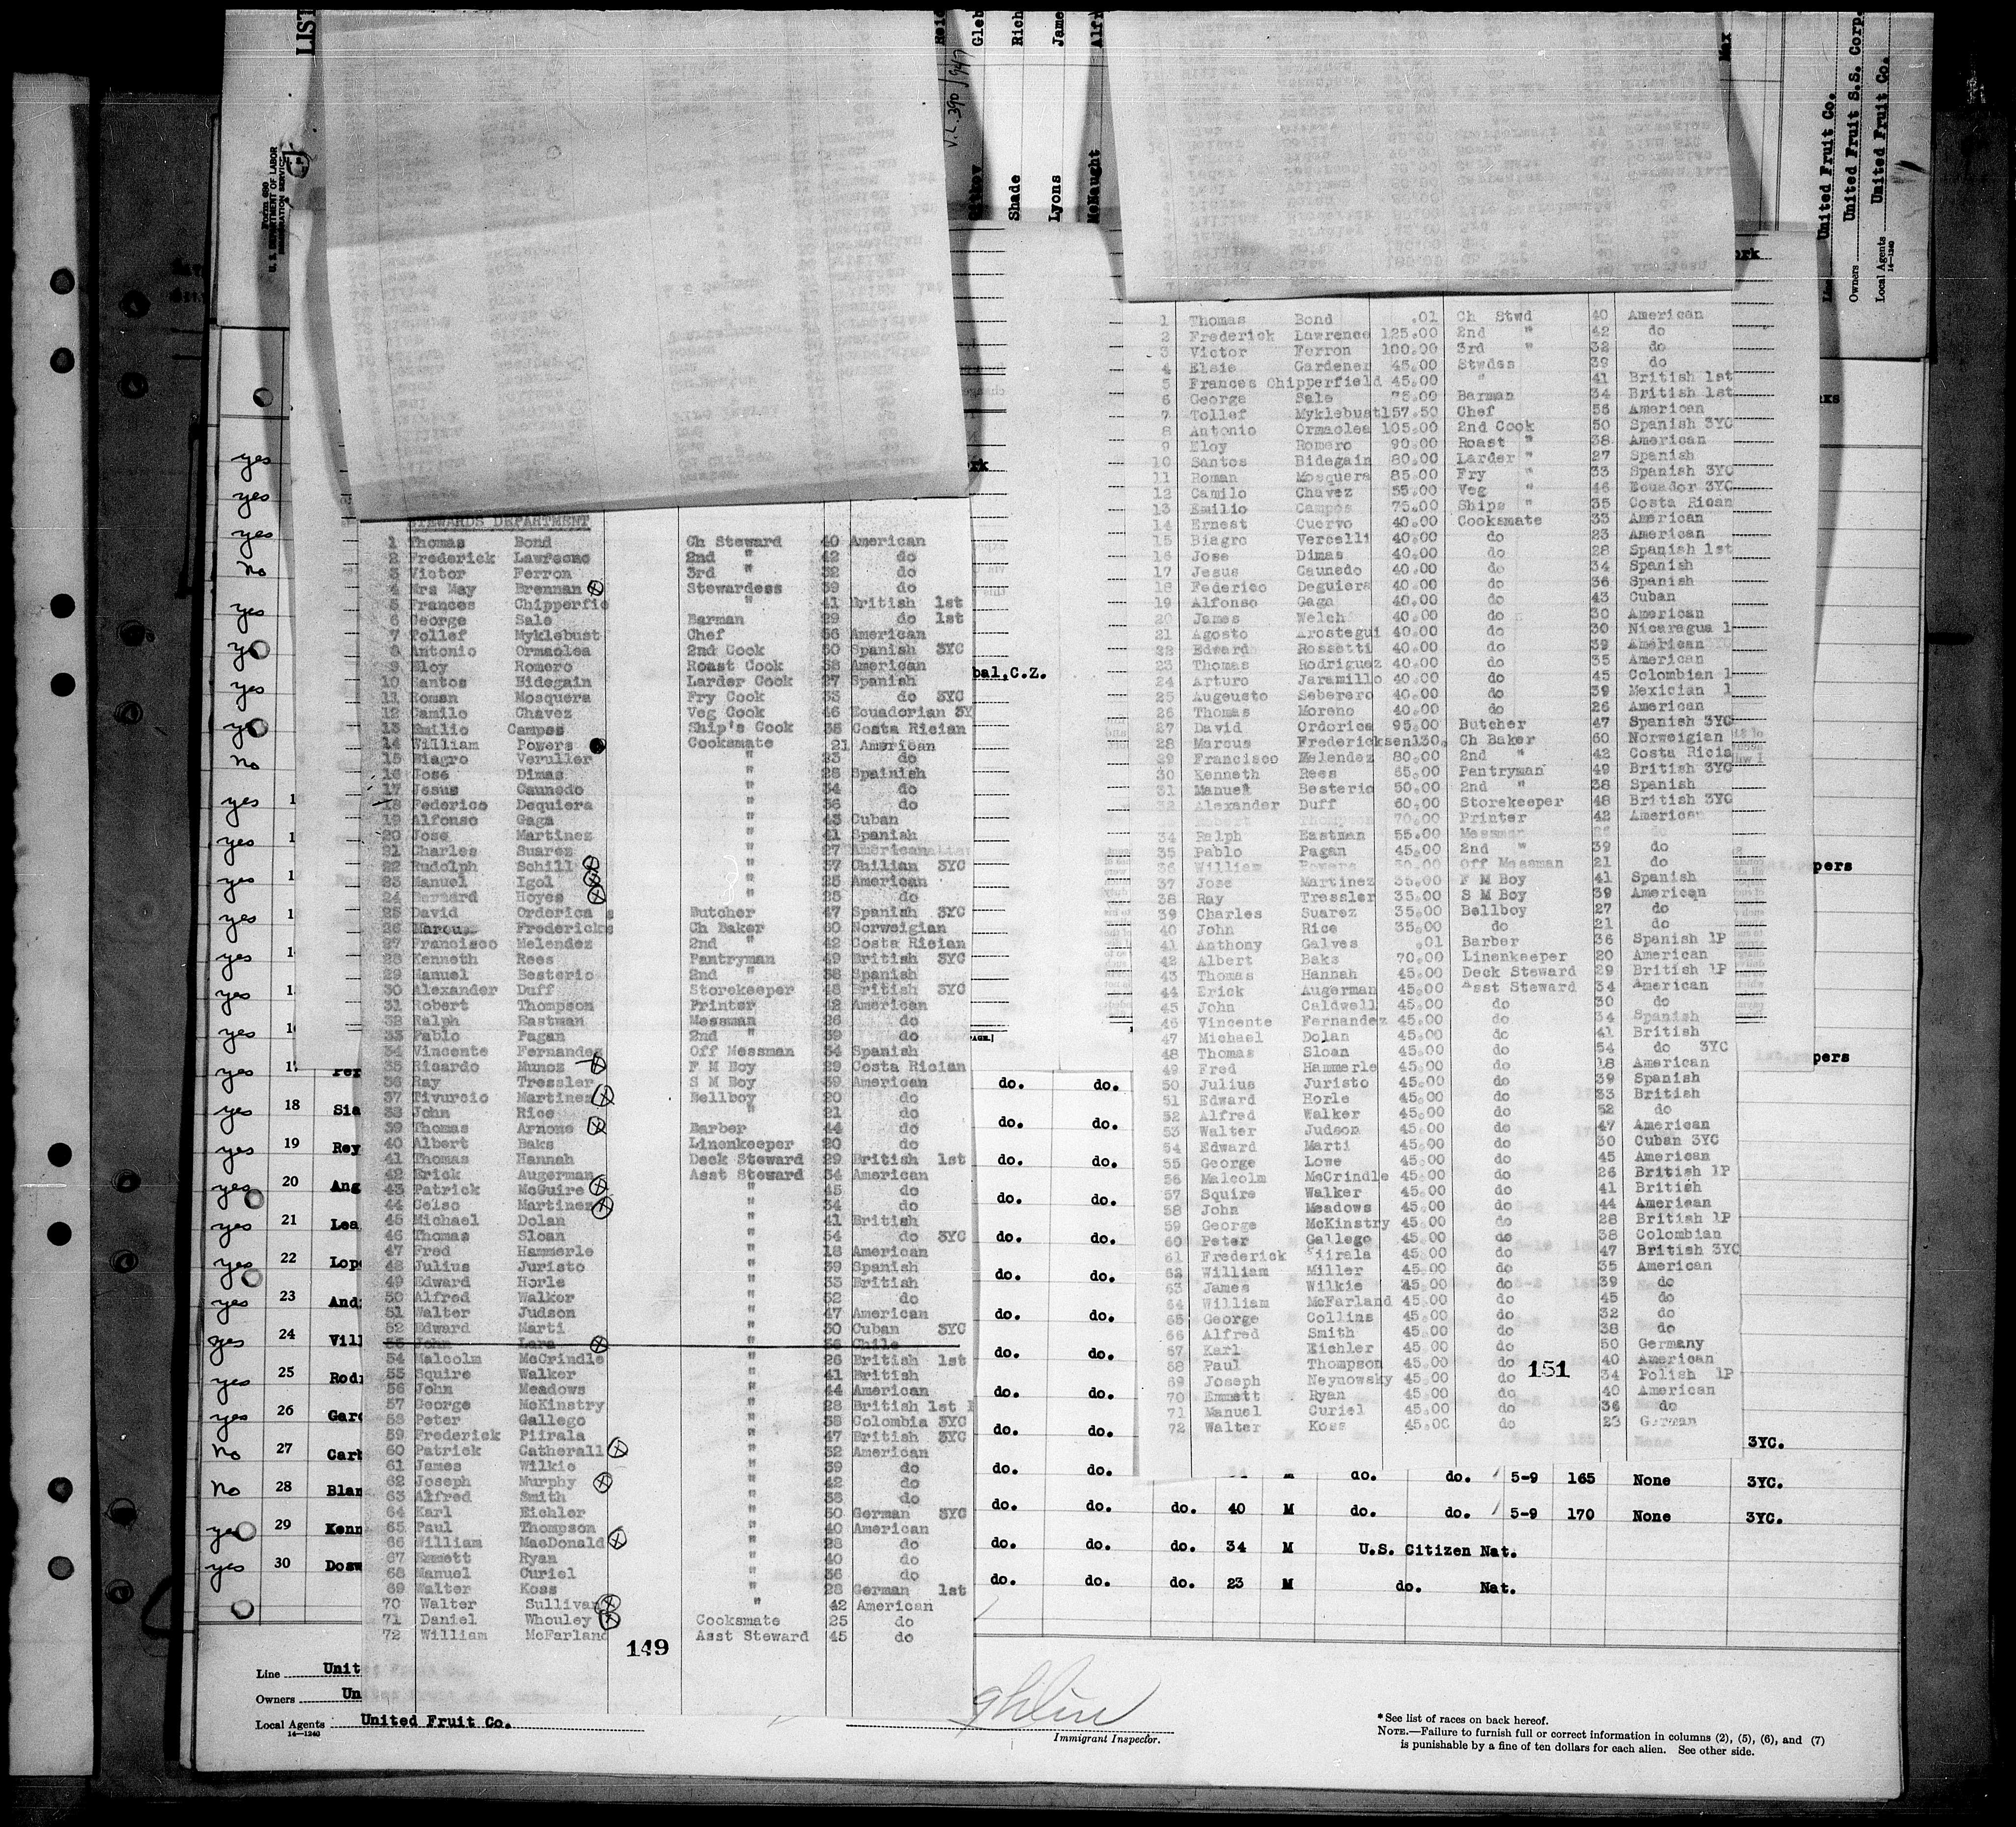 LIST
Form 680
U. S. DEPARTMENT OF LABOR
IMMIGRATION SERVICE
V.L. 390/947
Shade
Lyons
McNaught
Max
United Fruit Co.
Owners United Fruit S.S. Corp.
Local Agents United Fruit Co.
14-1240
STEWARDS DEPARTMENT
1 Thomas Bond Ch Steward 40 American
2 Frederick Lawrence 2nd " 42 do
3 Victor Ferron 3rd " 32 do
4 Mrs May Brennan Stewardess 39 do
5 Frances Chipperfie " 41 British 1st
6 George Sale Barman 29 do 1st
7 Tollef Myklebust Chef 56 American
8 Antonio Ormaolea 2nd Cook 50 Spanish 3YC
9 Eloy Romero Roast Cook 38 American
10 Santos Bidegain Larder Cook 27 Spanish
11 Roman Mosquera Fry Cook 33 do 3YC
12 Camilo Chavez Veg Cook 46 Ecuadorian 3Y
13 Emilio Campos Ship's Cook 35 Costa Rician
14 William Powers Cooksmate 21 American
15 Biagro Veruller " 23 do
16 Jose Dimas " 28 Spainish
17 Jesus Caunedo " 34 do
18 Federico Dequiera " 36 do
19 Alfonso Gaga " 43 Cuban
20 Jose Martinez " 41 Spanish
21 Charles Suarez " 27 American
22 Rudolph Schill " 37 Chilian 3YC
23 Manuel Igol " 25 American
24 Bernard Hoyes " 25 do
25 David Orderica s Butcher 47 Spanish 3YC
26 Marcus Fredericks Ch Baker 60 Norweigian
27 Francisco Melendez 2nd " 42 Costa Rician
28 Kenneth Rees Pantryman 49 British 3YC
29 Manuel Besterio 2nd " 38 Spanish
30 Alexander Duff Storekeeper 48 British 3YC
31 Robert Thompson Printer 42 American
32 Ralph Eastman Messman 26 do
33 Pablo Pagan 2nd " 39 do
34 Vincente Fernandez Off Messman 34 Spanish
35 Ricardo Munoz F M Boy 29 Costa Rician
36 Ray Tressler S M Boy 39 American
37 Tivurcio Martinez Bellboy 20 do
38 John Rice " 21 do
39 Thomas Arnone Barber 44 do
40 Albert Baks Linenkeeper 20 do
41 Thomas Hannah Deck Steward 29 British 1st
42 Erick Augerman Asst Steward 34 American
43 Patrick McGuire " 45 do
44 Celso Martinez " 34 do
45 Michael Dolan " 41 British
46 Thomas Sloan " 54 do 3YC
47 Fred Hammerle " 18 American
48 Julius Juristo " 39 Spanish
49 Edward Horle " 33 British
50 Alfred Walker " 52 do
51 Walter Judson " 47 American
52 Edward Marti " 30 Cuban 3YC
53 John Lara " 36 Chile
54 Malcolm McCrindle " 26 British 1st
55 Squire Walker " 41 British
56 John Meadows " 44 American
57 George McKinstry " 28 British 1st
58 Peter Gallego " 38 Colombia 3YC
59 Frederick Piirala " 47 British 3YC
60 Patrick Catherall " 32 American
61 James Wilkie " 39 do
62 Joseph Murphy " 42 do
63 Alfred Smith " 38 do
64 Karl Eichler " 50 German 3YC
65 Paul Thompson " 40 American
66 William MacDonald " 28 do
67 Emmett Ryan " 40 do
68 Manuel Curiel " 36 do
69 Walter Koss " 28 German 1st
70 Walter Sullivan " 42 American
71 Daniel Whouley Cooksmate 25 do
72 William McFarland Asst Steward 45 do
149
1 Thomas Bond .01 Ch Stwd 40 American
2 Frederick Lawrence 125.00 2nd " 42 do
3 Victor Ferron 100.00 3rd " 32 do
4 Elsie Gardener 45.00 Stwdes 39 do
5 Frances Chipperfield 45.00 " 41 British 1st
6 George Sale 75.00 Barman 34 British 1st
7 Tollef Myklebust 157.50 Chef 56 American
8 Antonio Ormaolea 105.00 2nd Cook 50 Spanish 3YC
9 Eloy Romero 90.00 Roast " 38 American
10 Santos Bidegain 80.00 Larder " 27 Spanish
11 Roman Mosquera 85.00 Fry " 33 Spanish 3YC
12 Camilo Chavez 55.00 Veg " 46 Ecuador 3YC
13 Emilio Campos 75.00 Ships " 35 Costa Rican
14 Ernest Cuervo 40.00 Cooksmate 33 American
15 Biagro Vercelli 40.00 do 23 American
16 Jose Dimas 40.00 do 28 Spanish 1st
17 Jesus Caunedo 40.00 do 34 Spanish
18 Federico Deguiera 40.00 do 36 Spanish
19 Alfonso Gaga 40.00 do 43 Cuban
20 James Welch 40.00 do 30 American
21 Agosto Arostegui 40.00 do 30 Nicaragua 1
22 Edward Rossetti 40.00 do 39 American
23 Thomas Rodriguez 40.00 do 35 American
24 Arturo Jaramillo 40.00 do 45 Colombian 1
25 Augeusto Seberero 40.00 do 39 Mexician 1
26 Thomas Moreno 40.00 do 26 American
27 David Ordorica 95.00 Butcher 47 Spanish 3YC
28 Marcus Fredericksen 130. Ch Baker 60 Norweigian
29 Francisco Melendez 80.00 2nd " 42 Costa Ricia
30 Kenneth Rees 65.00 Pantryman 49 British 3YC
31 Manuel Besterio 50.00 2nd " 38 Spanish
32 Alexander Duff 60.00 Storekeeper 48 British 3YC
Thompson 70.00 Printer 42 American
34 Ralph Eastman 55.00 Messman 26 do
35 Pablo Pagan 45.00 2nd " 39 do
36 William Powers 50.00 Off Messman 21 do
37 Jose Martinez 35.00 F M Boy 41 Spanish
38 Ray Tressler 35.00 S M Boy 39 American
39 Charles Suarez 35.00 Bellboy 27 do
40 John Rice 35.00 do 21 do
41 Anthony Galves .01 Barber 36 Spanish 1P
42 Albert Baks 70.00 Linenkeeper 20 American
43 Thomas Hannah 45.00 Deck Steward 29 British 1P
44 Erick Augerman 45.00 Asst Steward 34 American
45 John Caldwell 45.00 do 30 do
46 Vincente Fernandez 45.00 do 34 Spanish
47 Michael Dolan 45.00 do 41 British
48 Thomas Sloan 45.00 do 54 do 3YC
49 Fred Hammerle 45.00 do 18 American
50 Julius Juristo 45.00 do 39 Spanish
51 Edward Horle 45.00 do 33 British
52 Alfred Walker 45.00 do 52 do
53 Walter Judson 45.00 do 47 American
54 Edward Marti 45.00 do 30 Cuban 3YC
55 George Lowe 45.00 do 45 American
56 Malcolm McCrindle 45.00 do 26 British 1P
57 Squire Walker 45.00 do 41 British
58 John Meadows 45.00 do 44 American
59 George McKinstry 45.00 do 28 British 1P
60 Peter Gallego 45.00 do 38 Colombian
61 Frederick Piirala 45.00 do 47 British 3YC
62 William Miller 45.00 do 35 American
63 James Wilkie 45.00 do 39 do
64 William McFarland 45.00 do 45 do
65 George Collins 45.00 do 32 do
66 Alfred Smith 45.00 do 38 do
67 Karl Eichler 45.00 do 50 Germany
68 Paul Thompson 45.00 do 40 American
69 Joseph Neynowsky 45.00 do 34 Polish 1P
70 Emmett Ryan 45.00 do 40 American
71 Manuel Curiel 45.00 do 36 do
72 Walter Koss 45.00 do 23 German
151
bal,C.Z.
pers
pers
yes
yes
yes
No
yes
yes
yes
yes
No
yes
yes
yes
yes
yes
yes
yes
yes
yes 18 Sia do. do.
yes 19 Rey do. do.
yes 20 Ang do. do.
yes 21 Lea do. do.
yes 22 Lop do. do.
yes 23 And do. do.
yes 24 Vill do. do.
yes 25 Rod do. do.
yes 26 Gar do. do.
No 27 Carb do. do. 3YC.
No 28 Blan do. do. M do. do. 5-9 165 None 3YC.
yes 29 Kenn do. do. do. 40 M do. do. 5-9 170 None 3YC.
yes 30 Dosw do. do. do. 34 M U.S. Citizen Nat.
do. do. do. 23 M do. Nat.
Line Unit
Owners Un
Local Agents United Fruit Co.
14-1240
Immigrant Inspector.
* See list of races on back hereof.
NOTE.—Failure to furnish full or correct information in columns (2), (5), (6), and (7)
is punishable by a fine of ten dollars for each alien. See other side.